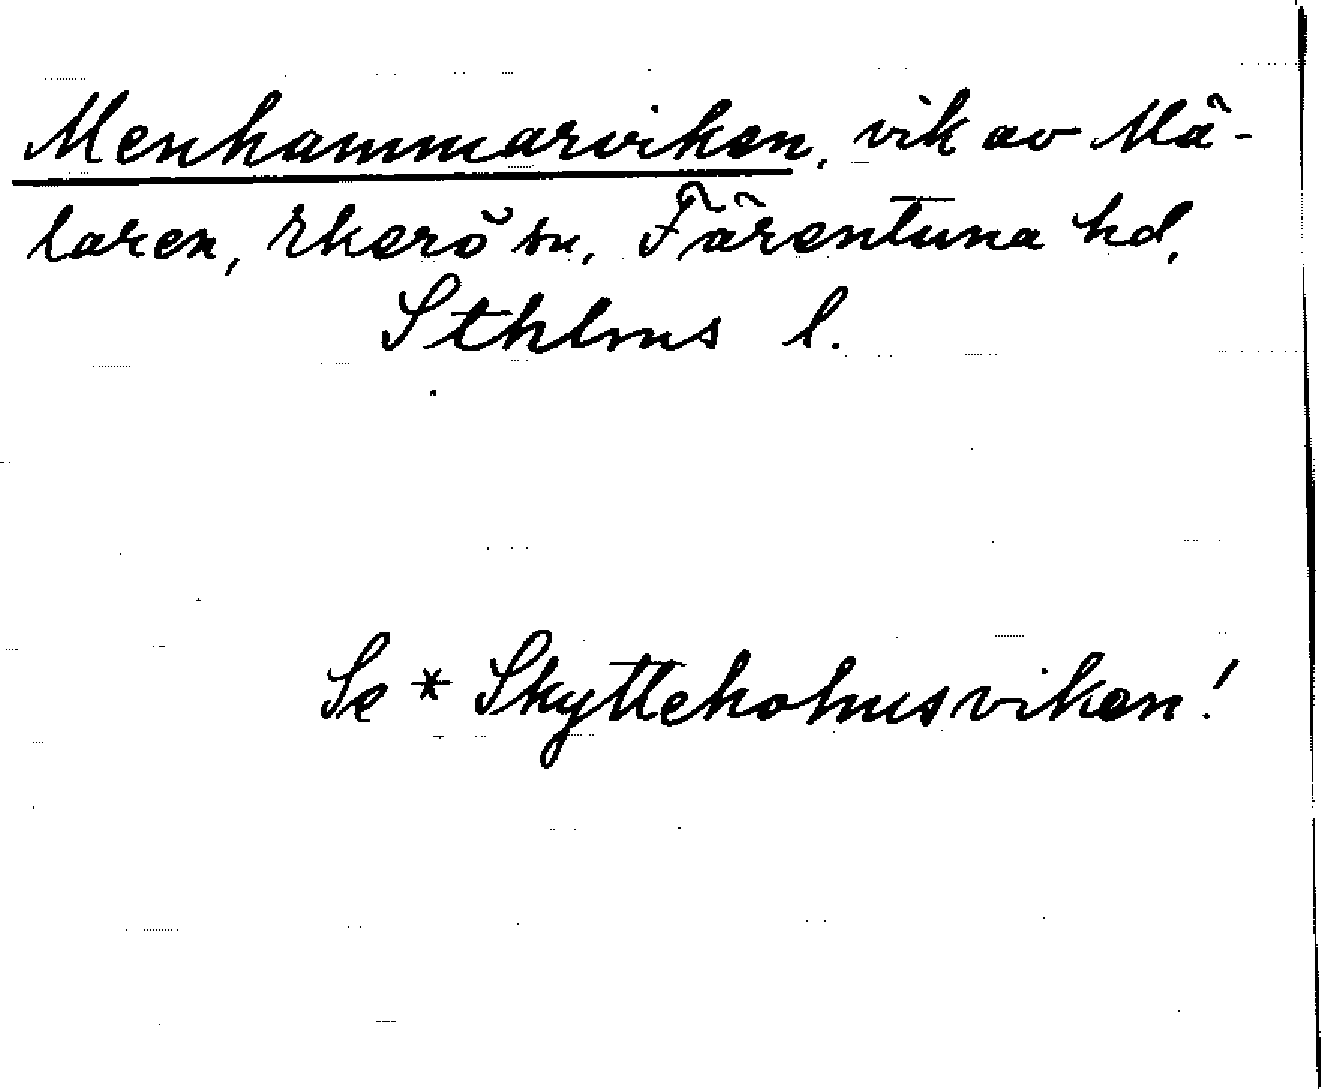 Menhammarviken, vik av Mä-
laren, Ekerö sn, Färentuna hd,
Sthlms l.
Se * Skytteholmsviken!